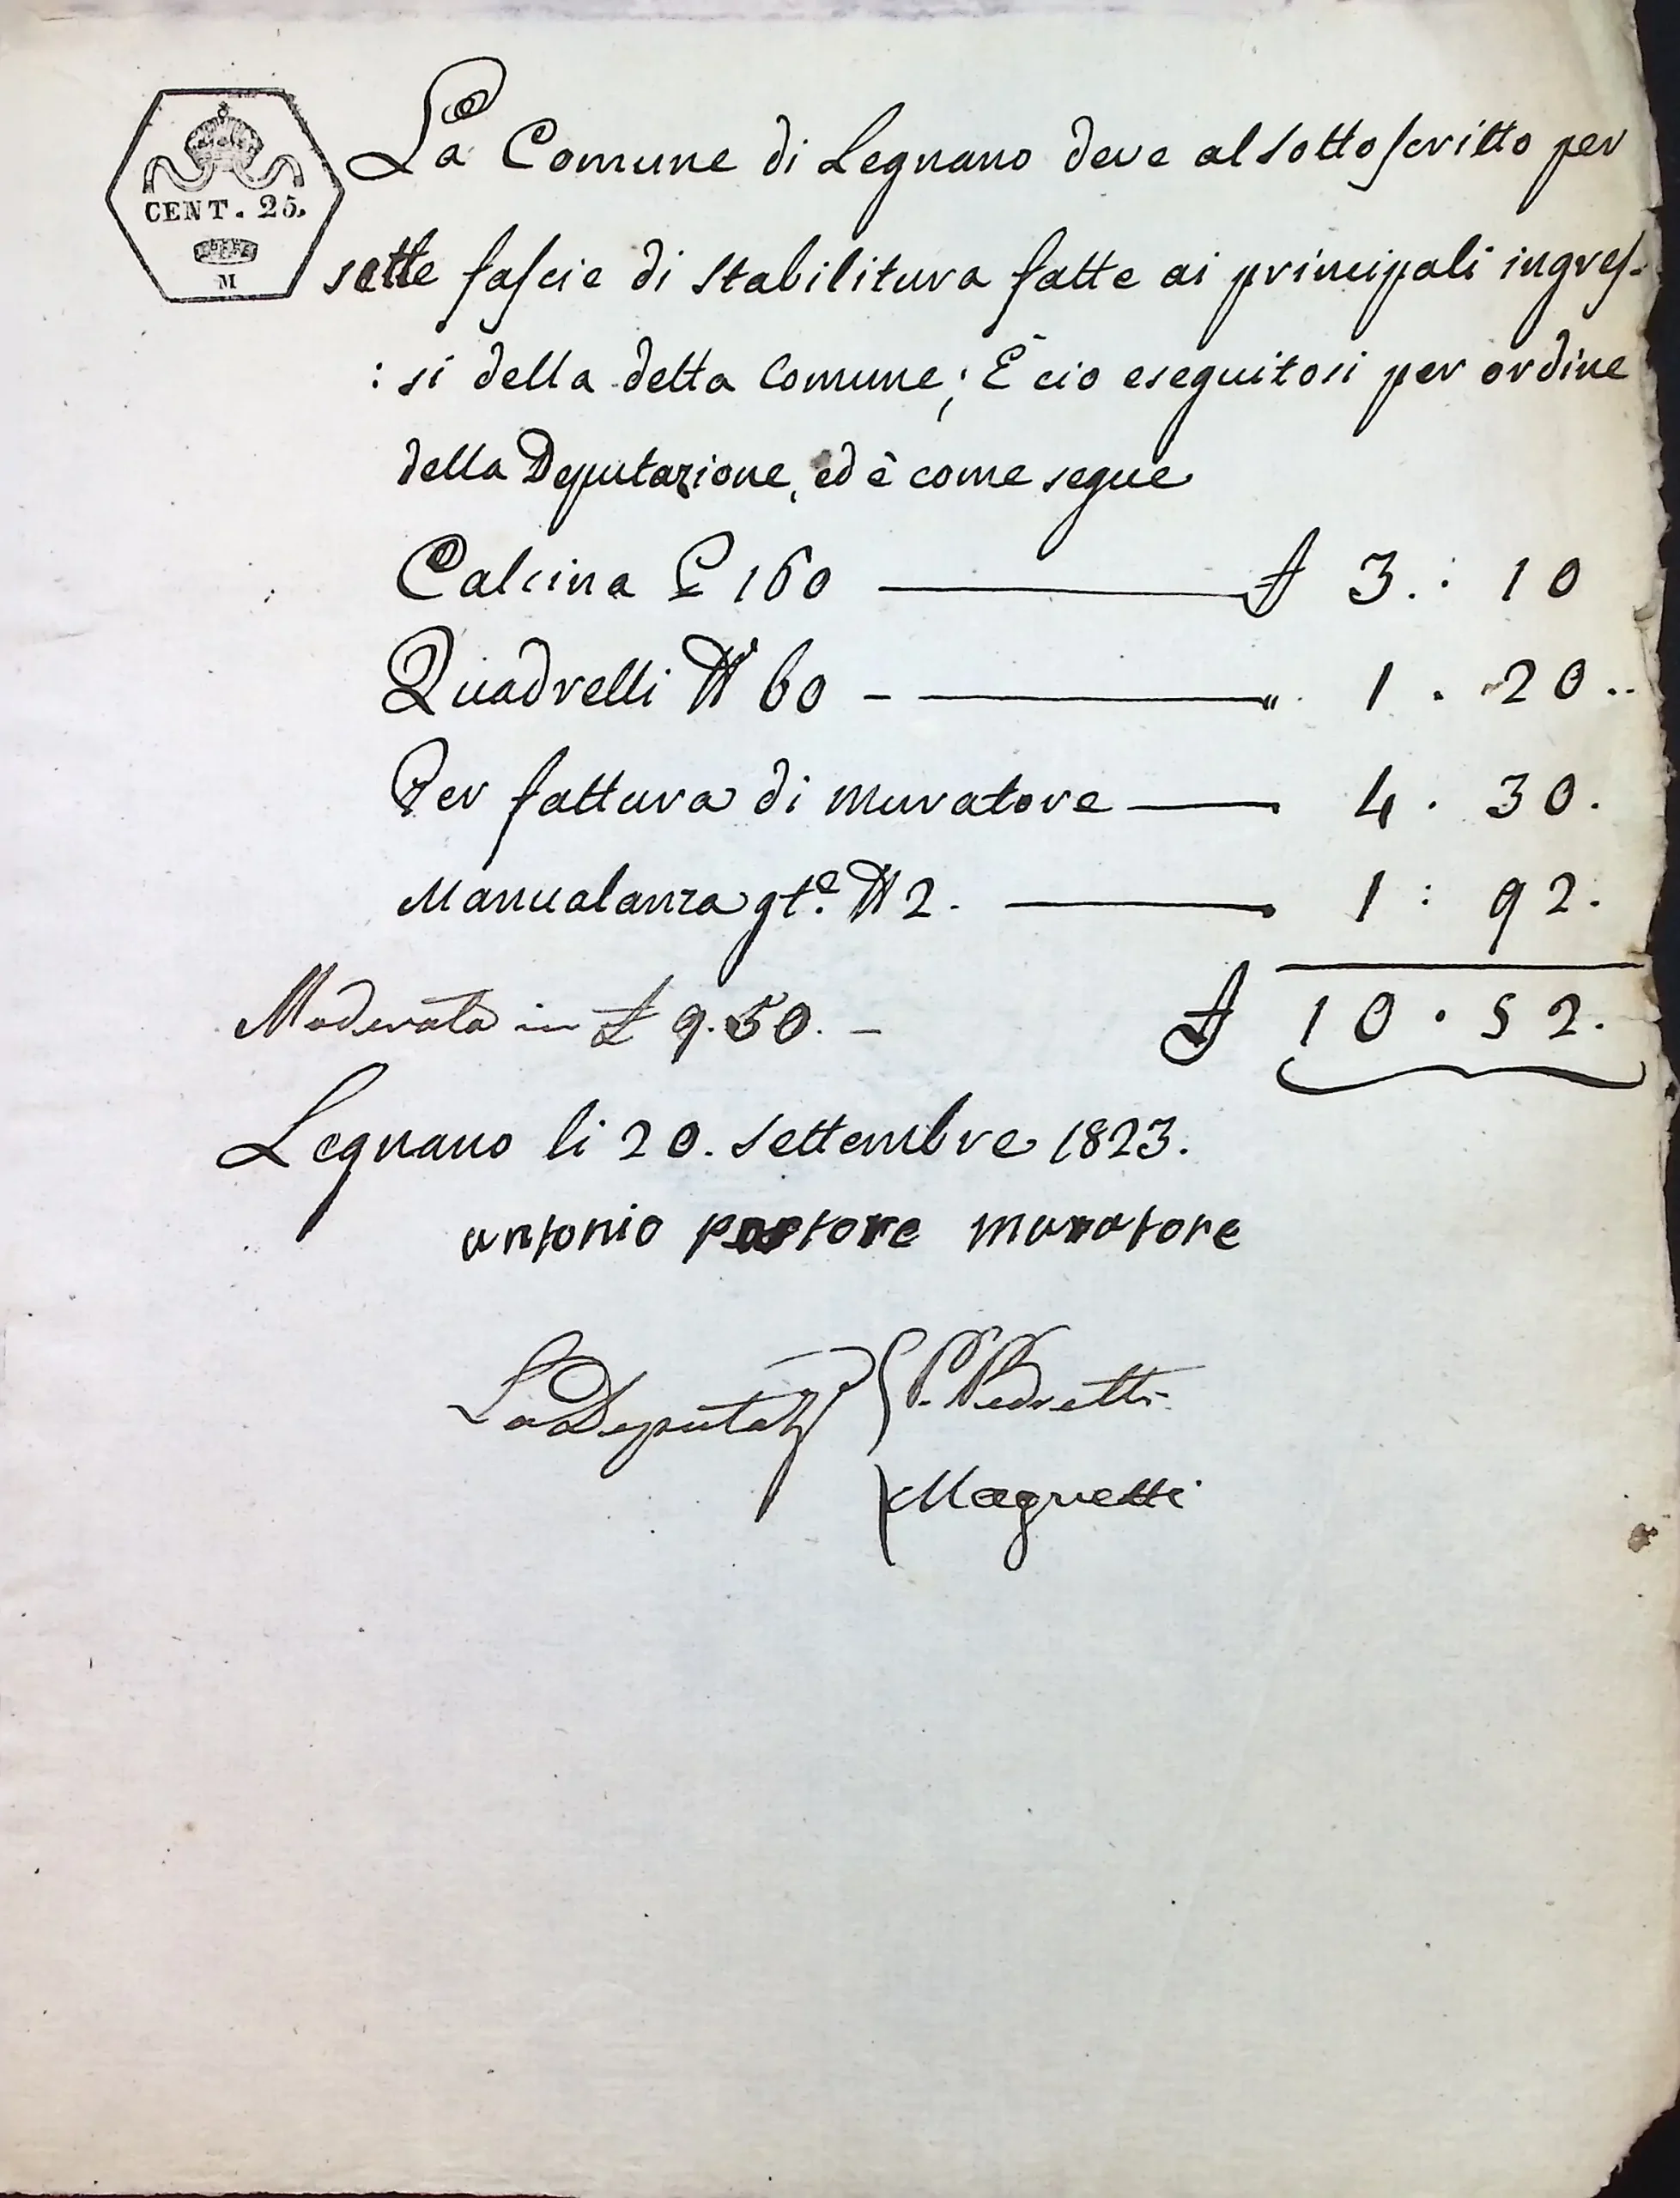 CENT. 25.
M
La Comune di Legnano deve al sottoscritto per
sette fascie di stabilitura fatte ai principali ingres-
:si della detta Comune; E ciò eseguitosi per ordine
della Deputazione, ed è come segue
Calcina £ 160 — £ 3.: 10
Quadrelli N 60 - — " 1 . 20..
Per fattura di muratore — 4 . 30.
Manualanza gte. N 2. — 1 : 92.
Moderata in £ 9.50. — £ 10 . 52.
Legnano li 20. Settembre 1823.
antonio pastore muratore
La Deputaz P. Pedretti
Magnetti